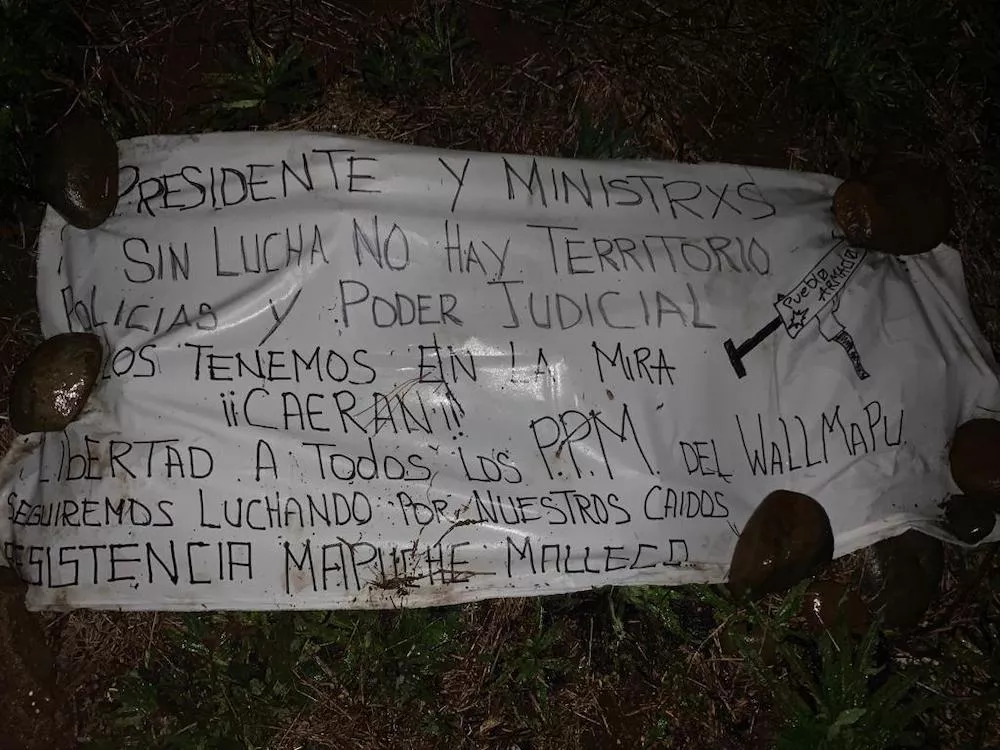 PRESIDENTE Y MINISTRXS
SIN LUCHA NO HAY TERRITORIO
POLICIAS Y PODER JUDICIAL
LOS TENEMOS EN LA MIRA
¡¡CAERAN!!
LIBERTAD A TODOS LOS P.P.M. DEL WALLMAPU
SEGUIREMOS LUCHANDO POR NUESTROS CAIDOS
RESISTENCIA MAPUCHE MALLECO
PUEBLO
ARMADO